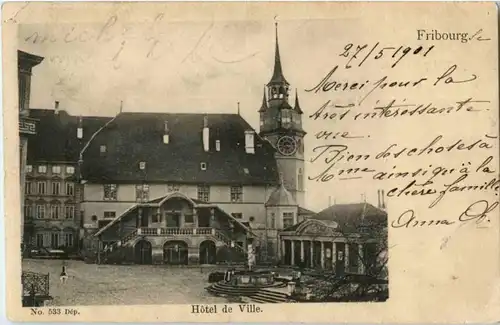 Fribourg, le
27/5 1901
Merci pour la
très intéressante
vue.
Bien des choses à
Mme ainsi qu'à la
chère famille
Anna G.
No. 533 Dép.
Hôtel de Ville.